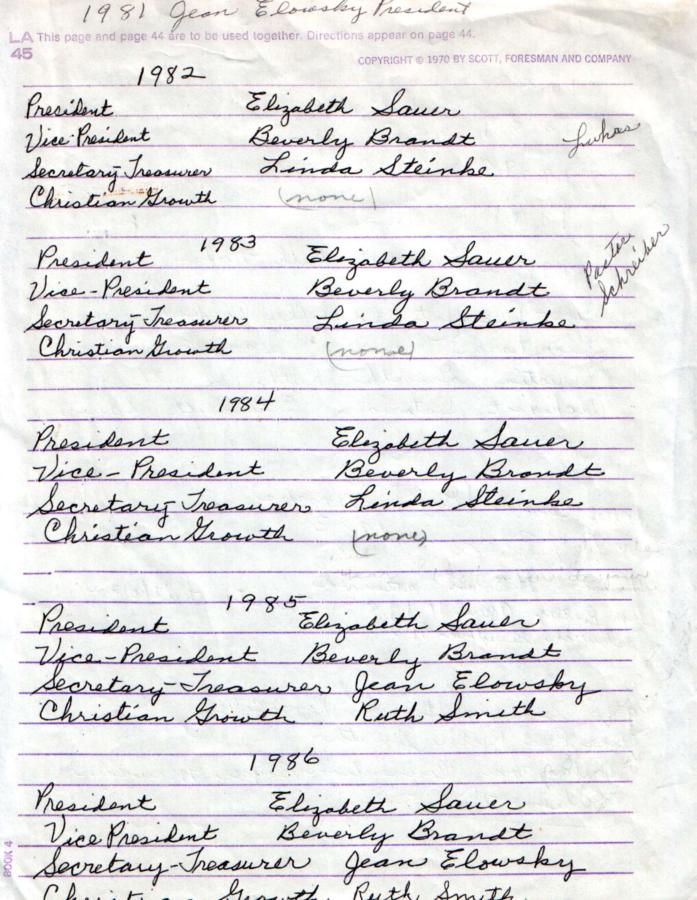 1981 Jean Elowsky President
LA This page and page 44 are to be used together. Directions appear on page 44.
45
COPYRIGHT © 1970 BY SCOTT, FORESMAN AND COMPANY
1982
President Elizabeth Sauer
Vice-President Beverly Brandt Lukas
Secretary-Treasurer Linda Steinke
Christian Growth (none)
1983
President Elizabeth Sauer
Pastor Schreiber
Vice-President Beverly Brandt
Secretary-Treasurer Linda Steinke
Christian Growth (none)
1984
President Elizabeth Sauer
Vice-President Beverly Brandt
Secretary-Treasurer Linda Steinke
Christian Growth (none)
1985
President Elizabeth Sauer
Vice-President Beverly Brandt
Secretary-Treasurer Jean Elowsky
Christian Growth Ruth Smith
1986
President Elizabeth Sauer
Vice President Beverly Brandt
Secretary-Treasurer Jean Elowsky
Christian Growth Ruth Smith
BOOK 4